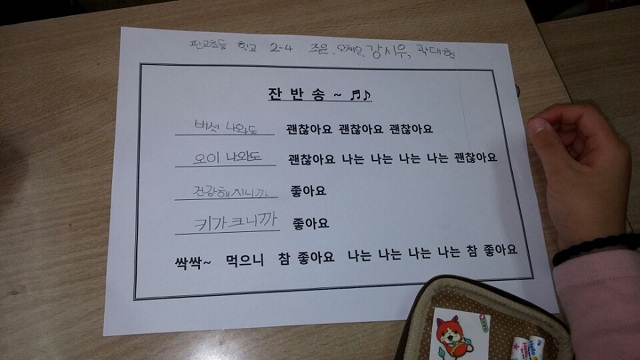 판교초등 학교 2-4 조윤, 오채인, 강시우, 곽대현
잔 반 송 ~ ♬♪
버섯 나와도 괜찮아요 괜찮아요 괜찮아요
오이 나와도 괜찮아요 나는 나는 나는 나는 괜찮아요
건강해지니까 좋아요
키가크니까 좋아요
싹싹~ 먹으니 참 좋아요 나는 나는 나는 나는 참 좋아요